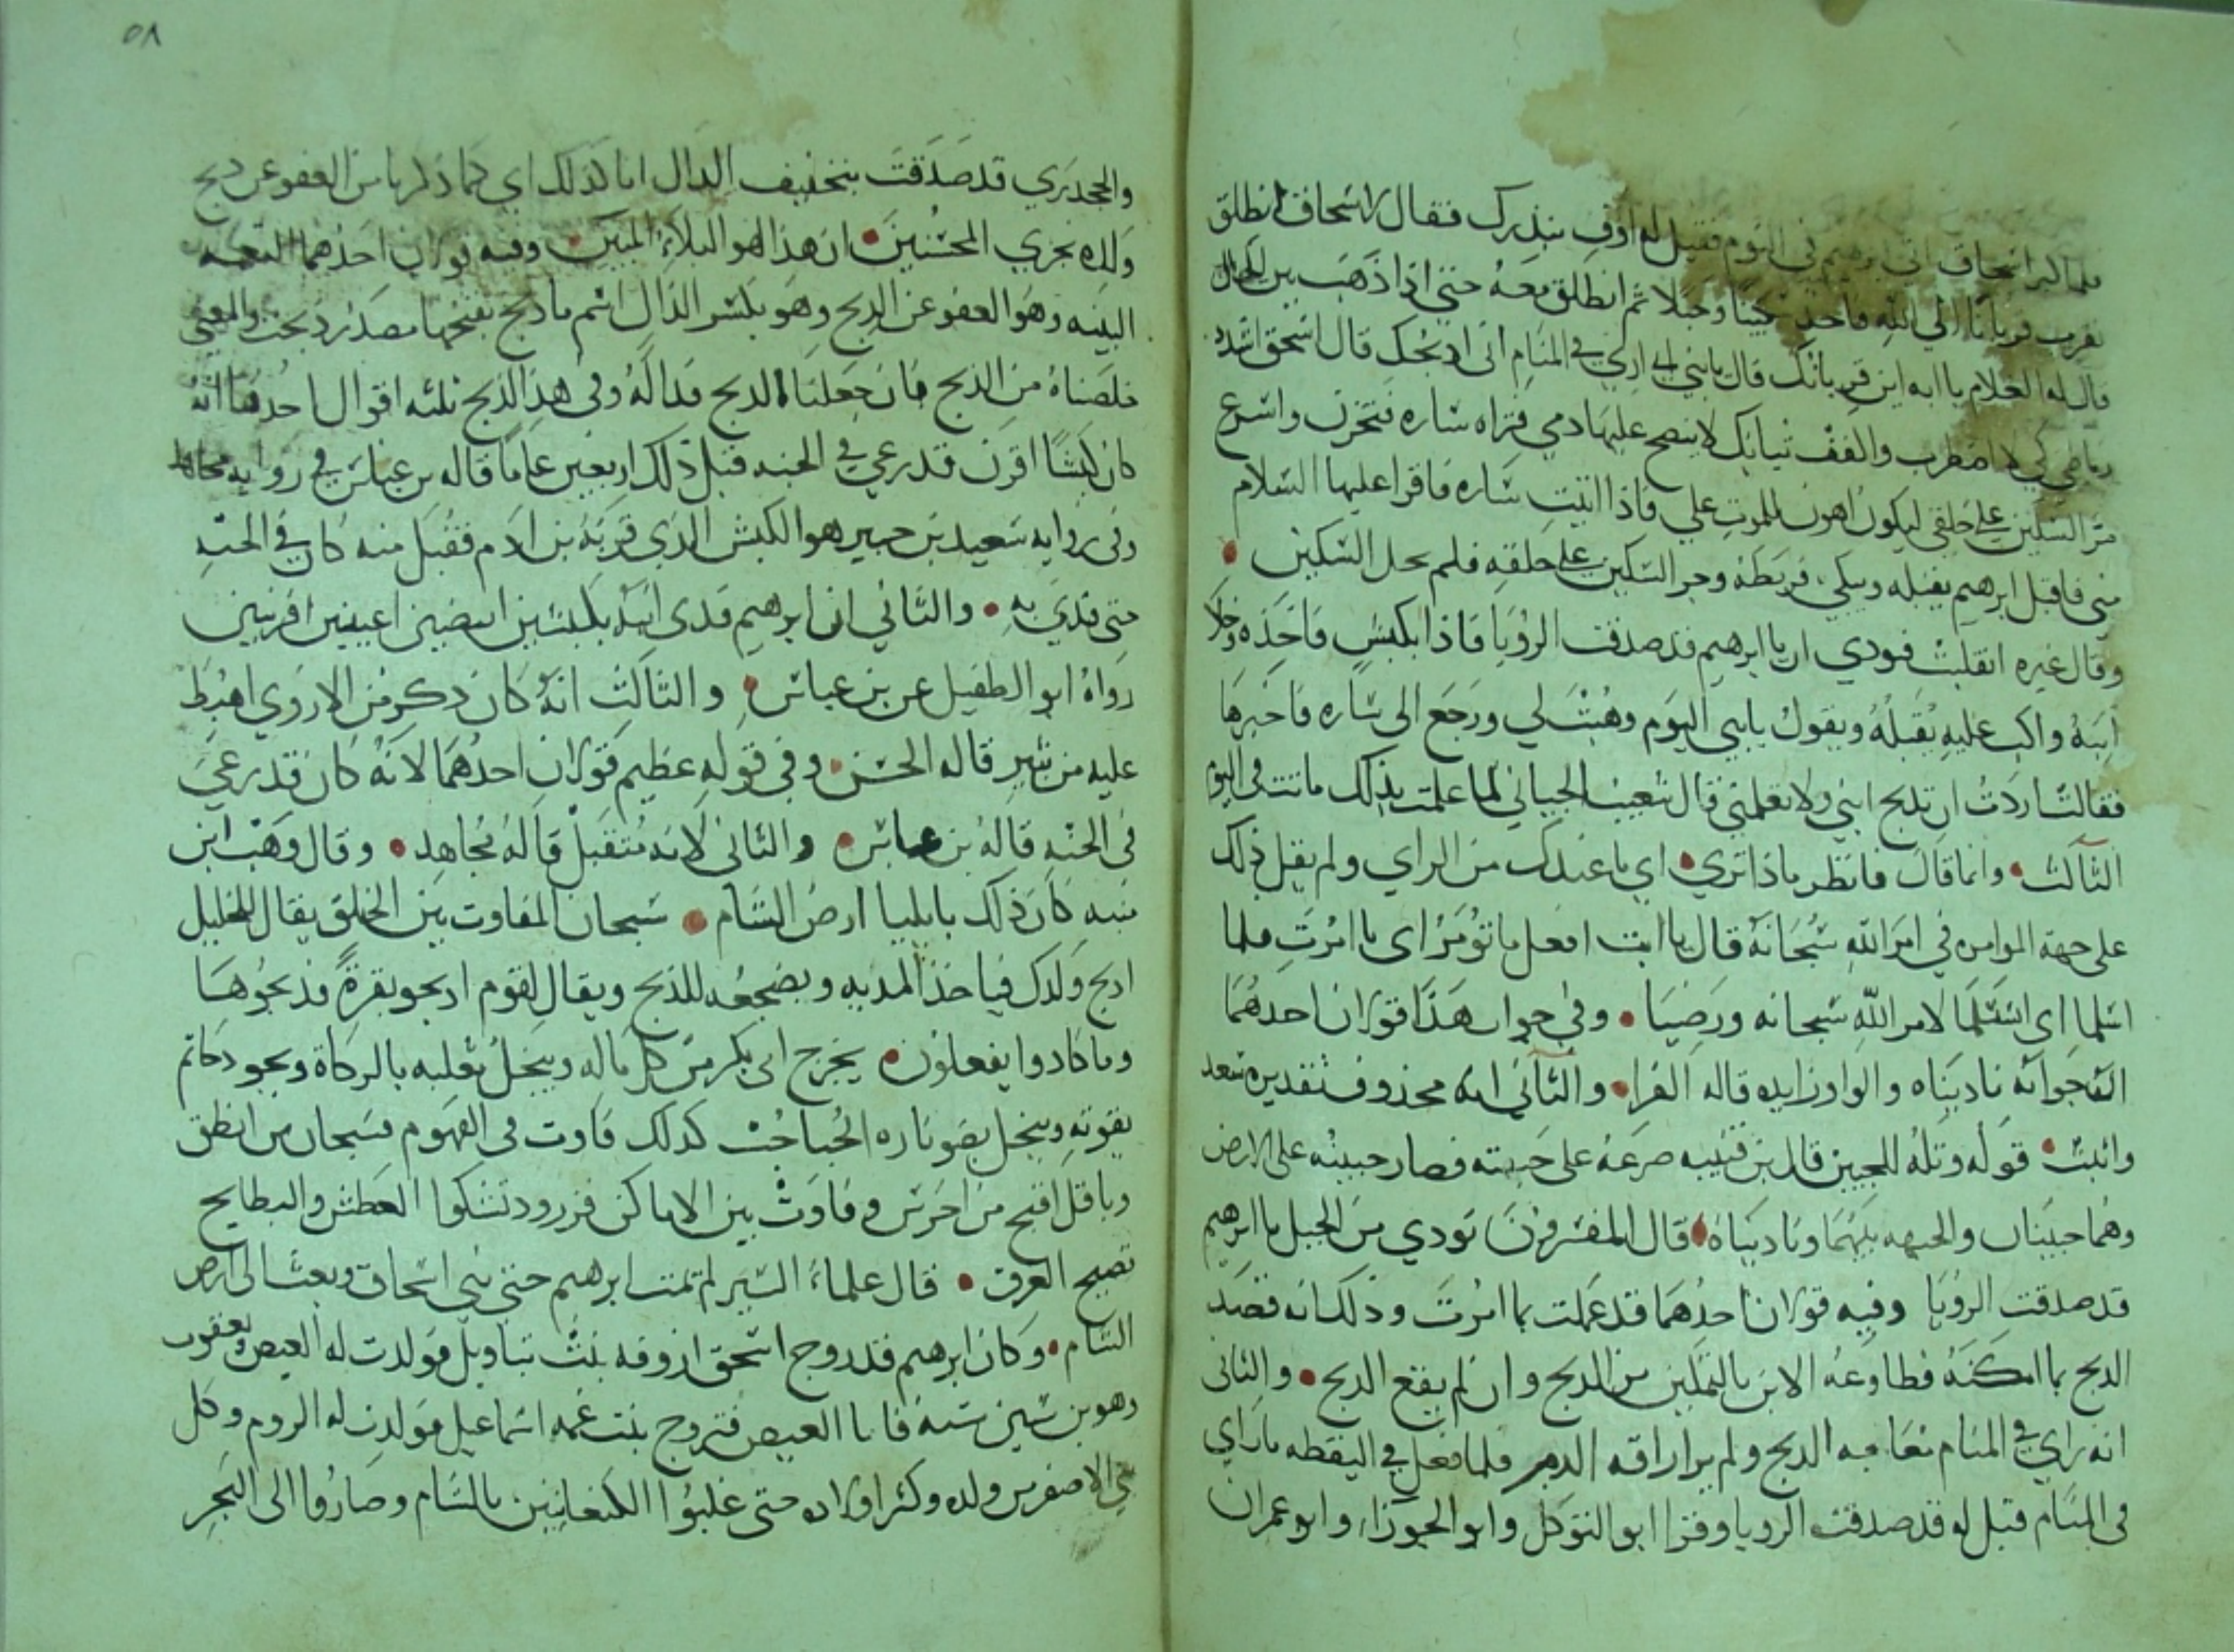 فلما كبر اسحاق اتى ابرهيم في النوم فقيل له اوف بنذرك فقال لاسحاق انطلق
نقرب قربانا الى الله فاخذ سكينا وحبلا ثم انطلق معه حتى اذا ذهب بين الجبال
قال له الغلام يا ابه اين قربانك قال يا بني اني ارى في المنام اني اذبحك قال اسحق اشدد
رباطي كي لا اضطرب واكفف ثيابك لا ينضح عليها دمي فتراه ساره فتحزن واسرع
مر السكين على حلقي ليكون اهون للموت علي فاذا اتيت ساره فاقرا عليها السلام
مني فاقبل ابرهيم يقبله ويبكي فربطه وجر السكين على حلقه فلم تحل السكين
وقال غيره انقلبت فنودي ان يا ابرهيم قد صدقت الرؤيا فاذا بكبش فاخذه وخلا
ابنه واكب عليه يقبله ويقول يا بني اليوم وهبت لي ورجع الى ساره فاخبرها
فقالت اردت ان تذبح ابني ولا تعلمني قال شعيب الجبائي لما علمت بذلك ماتت في اليوم
الثالث وانما قال فانظر ماذا ترى اي ما عندك من الراي ولم يقل ذلك
على جهة الموامره في امر الله سبحانه قال يا ابت افعل ما تؤمر اي ما امرت فلما
اسلما اي استسلما لامر الله سبحانه ورضيا وفي جواب هذا قولان احدهما
ان جوابه ناديناه والواو زايده قاله الفرا والثاني انه محذوف تقديره سعد
واثيب قوله وتله للجبين قال بن قتيبه صرعه على جبهته فصار جبينه على الارض
وهما جبينان والجبهه بينهما وناديناه قال المفسرون نودي من الجبل يا ابرهيم
قد صدقت الرؤيا وفيه قولان احدهما قد عملت بما امرت وذلك انه قصد
الذبح بما امكنه فطاوعه الابن بالتمكين من الذبح وان لم يقع الذبح والثاني
انه راي في المنام معالجه الذبح ولم ير اراقه الدم فلما فعل في اليقظه ما راي
في المنام قيل له قد صدقت الرويا وقرا ابو المتوكل وابو الجوزا وابو عمران
٥٨
والجحدري قد صدقت بتخفيف الدال انا كذلك اي كما ذكرنا من العفو عن ذبح
ولده نجزي المحسنين ان هذا لهو البلاء المبين وفيه قولان احدهما النعمه
البينه وهو العفو عن الذبح وهو بكسر الذال اسم ما ذبح بفتحها مصدر ذبحت والمعنى
خلصناه من الذبح فان جعلنا الذبح فدا له وفي هذا الذبح ثلثه اقوال احدها انه
كان كبشا اقرن قد رعي في الجنه قبل ذلك اربعين عاما قاله بن عباس في روايه مجاهد
وفي روايه سعيد بن جبير هو الكبش الذي قربه بن ادم فقبل منه كان في الجنه
حتى فدي به والثاني ان ابرهيم فدى ابنه بكبشين ابيضين اعينين اقرنين
رواه ابو الطفيل عن بن عباس والثالث انه كان ذكر من الاروى اهبط
عليه من ثبير قاله الحسن وفي قوله عظيم قولان احدهما لانه كان قد رعي
في الجنه قاله بن عباس والثاني لانه متقبل قاله مجاهد وقال وهب ابن
منبه كان ذلك بايليا ارض الشام سبحان المفاوت بين الخلق يقال للخليل
اذبح ولدك فياخذ المديه ويضجعه للذبح ويقال لقوم اذبحو بقرة فذبحوها
وما كادوا يفعلون يخرج ابي بكر من كل ماله ويبخل ثعلبه بالزكاة ويجود حاتم
بقوته ويبخل بضو ناره الحباحب كذلك فاوت في الفهوم فسبحان من انطق
وباقل اقبح من اخرس وفاوت بين الاماكن فزرود تشكوا العطش والبطايح
تصيح الغرق قال علماء السير لم يمت ابرهيم حتى نبي اسحاق وبعث الى ارض
الشام وكان ابرهيم قد زوج اسحق ازوقه بنت تناويل فولدت له العيص ويعقوب
وهو بن ستين سنه فاما العيص فتزوج بنت عمه اسماعيل فولدت له الروم وكل
بني الاصفر من ولده وكثر اولاده حتى غلبوا الكنعانيين بالشام وصاروا الى البحر